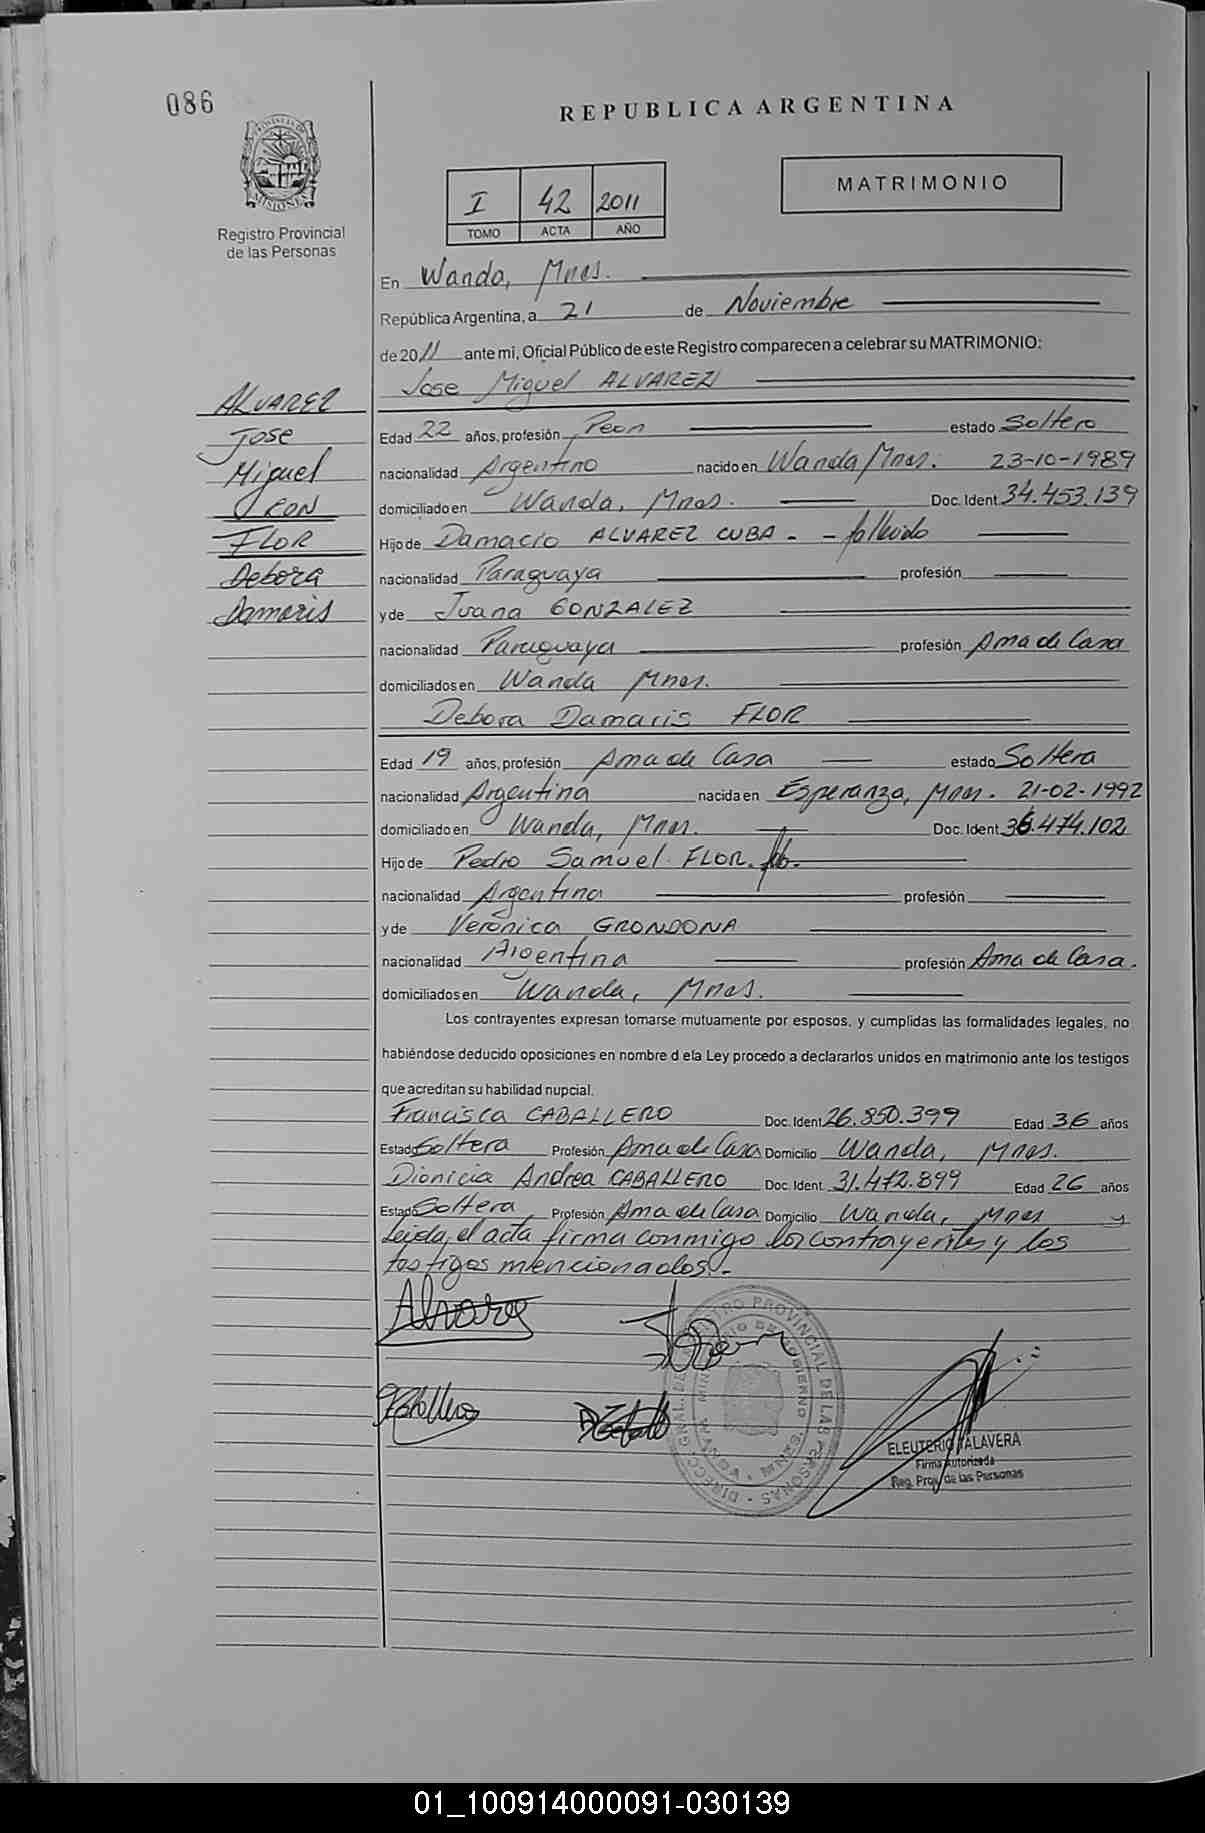 086
REPUBLICA ARGENTINA
PROVINCIA DE MISIONES
Registro Provincial
de las Personas
I 42 2011
TOMO ACTA AÑO
MATRIMONIO
En Wanda, Mnes.
República Argentina, a 21 de Noviembre
de 2011 ante mi, Oficial Público de este Registro comparecen a celebrar su MATRIMONIO:
Jose Miguel ALVAREZ
ALVAREZ
Jose
Miguel
CON
FLOR
Debora
Damaris
Edad 22 años, profesión Peon estado Soltero
nacionalidad Argentino nacido en Wanda Mnes. 23-10-1989
domiciliado en Wanda, Mnes. Doc. Ident. 34.453.139
Hijo de Damacio ALVAREZ CUBA - - fallecido
nacionalidad Paraguaya profesión
y de Juana GONZALEZ
nacionalidad Paraguaya profesión Ama de Casa
domiciliados en Wanda Mnes.
Debora Damaris FLOR
Edad 19 años, profesión Ama de Casa estado Soltera
nacionalidad Argentina nacida en Esperanza, Mnes. 21-02-1992
domiciliado en Wanda, Mnes. Doc. Ident. 36.474.102
Hijo de Pedro Samuel FLOR.
nacionalidad Argentina profesión
y de Verónica GRONDONA
nacionalidad Argentina profesión Ama de Casa.
domiciliados en Wanda, Mnes.
Los contrayentes expresan tomarse mutuamente por esposos, y cumplidas las formalidades legales, no
habiéndose deducido oposiciones en nombre d ela Ley procedo a declararlos unidos en matrimonio ante los testigos
que acreditan su habilidad nupcial.
Francisca CABALLERO Doc. Ident. 26.850.399 Edad 36 años
Estado Soltera Profesión Ama de Casa Domicilio Wanda, Mnes.
Dionicia Andrea CABALLERO Doc. Ident. 31.472.899 Edad 26 años
Estado Soltera Profesión Ama de Casa Domicilio Wanda, Mnes y
Leida el acta firma conmigo los contrayentes y los
testigos mencionados.-
Alvarez
ELEUTERIO TALAVERA
Firma Autorizada
Reg. Prov. de las Personas
01_100914000091-030139